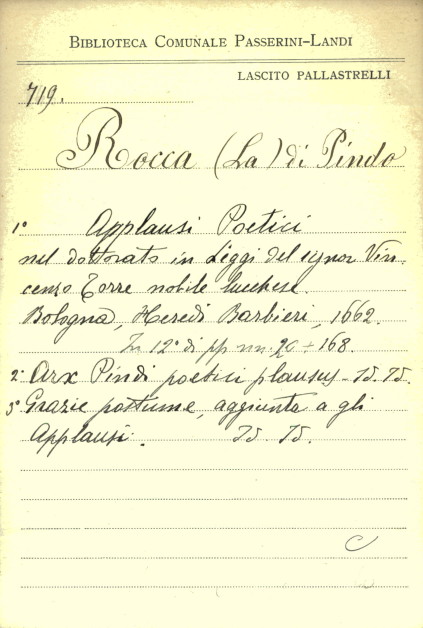 BIBLIOTECA COMUNALE PASSERINI-LANDI
LASCITO PALLASTRELLI
719.
Rocca (La) di Pindo
1° Applausi Poetici
nel dottorato in Leggi del signor Vin-
cenzo Torre nobile lucchese.
Bologna, Heredi Barbieri, 1662.
In 12° di pp nn. 20 + 168.
2° Arx Pindi poetici plausus - Id. Id.
3° Grazie postume, aggiunta a gli
Applausi. Id. Id.